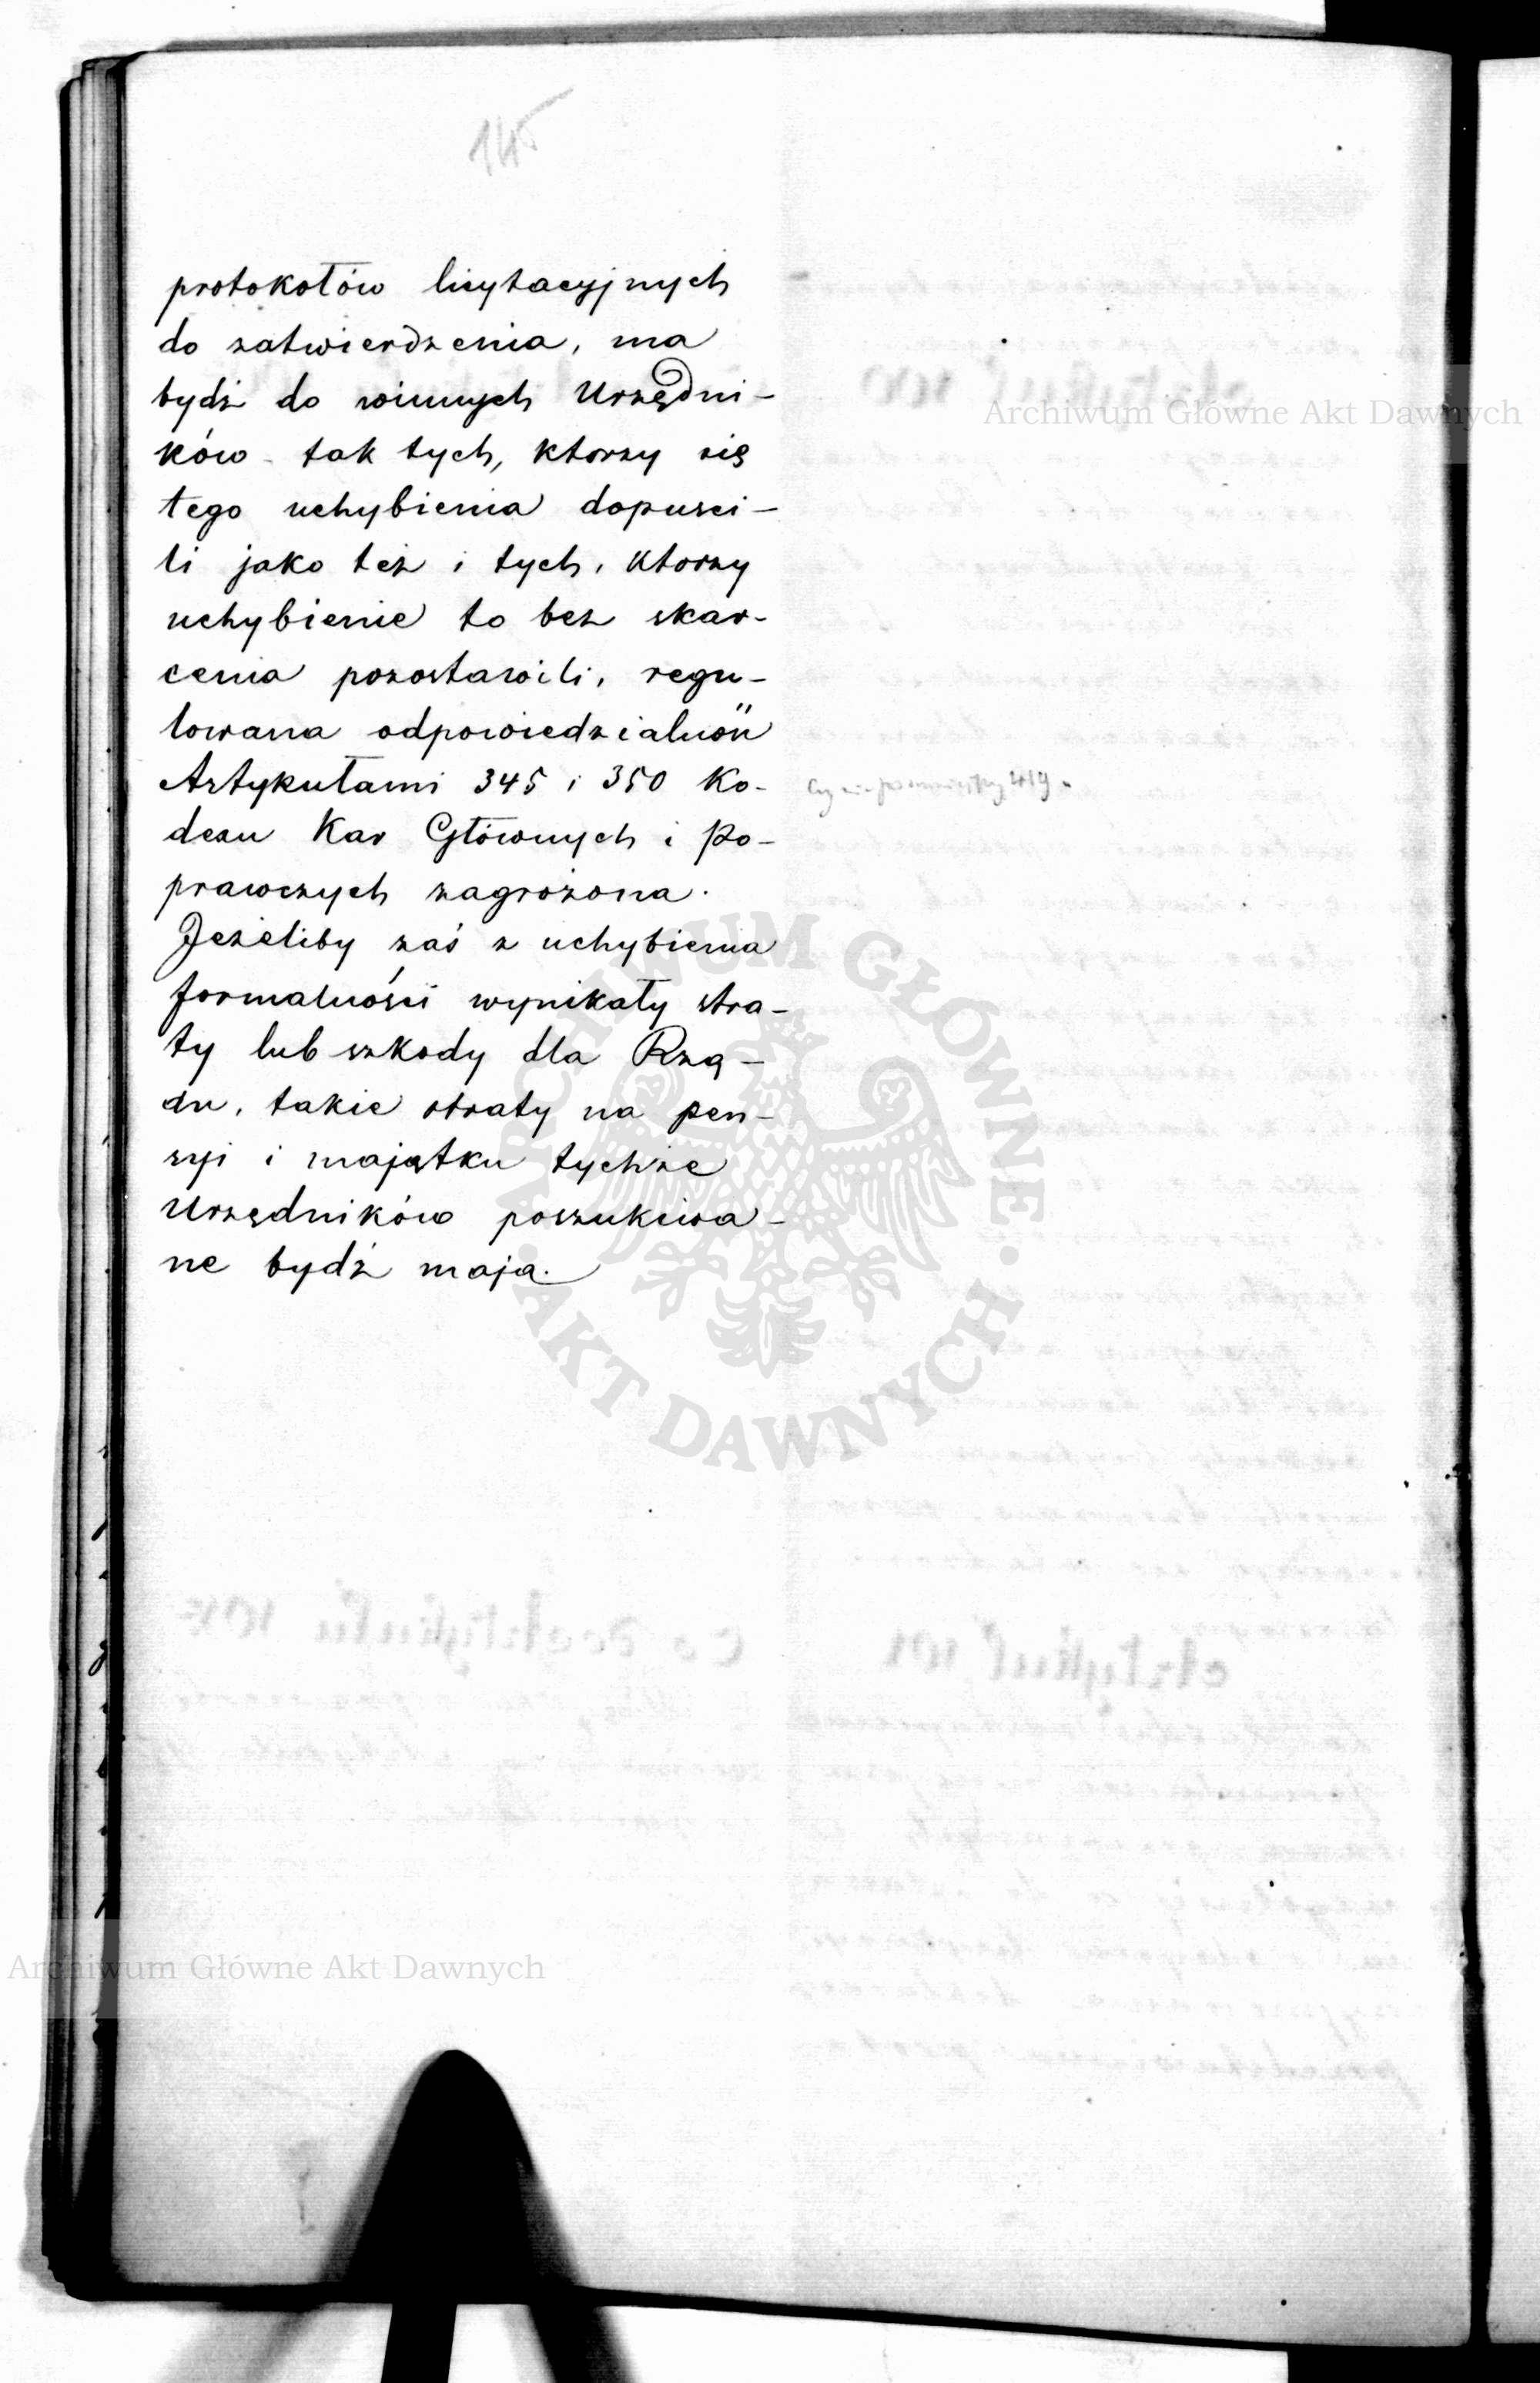 145
protokołów licytacyjnych
do zatwierdzenia, ma
bydź do winnych Urzędni-
ków tak tych, ktorzy się
tego uchybienia dopusci-
li jako też i tych, ktorzy
uchybienie to bez skar-
cenia pozostawili, regu-
lowana odpowiedzialność
Artykułami 345 i 350 Ko-
dexu Kar Głównych i Po-
prawczych zagrożona.
Jeżeliby zaś z uchybienia
formalności wynikały stra-
ty lub szkody dla Rzą-
du, takie straty na pen-
syi i majątku tychże
Urzędników poszukiwa-
ne bydź mają.
419
Archiwum Główne Akt Dawnych
ARCHIWUM GŁÓWNE
AKT DAWNYCH
Archiwum Główne Akt Dawnych